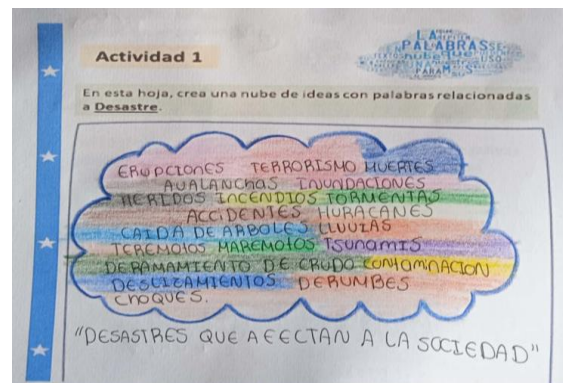 LA
PALABRAS
nube que USO
UNA
PARA MÁS
Actividad 1
En esta hoja, crea una nube de ideas con palabras relacionadas
a Desastre.
ERUPCIONES TERRORISMO MUERTES
AVALANCHAS INUNDACIONES
HERIDOS INCENDIOS TORMENTAS
ACCIDENTES HURACANES
CAIDA DE ARBOLES LLUVIAS
TEREMOTOS MAREMOTOS TSUNAMIS
DERAMAMIENTO DE CRUDO CONTAMINACION
DESLIZAMIENTOS DERUMBES
CHOQUES.
"DESASTRES QUE AFECTAN A LA SOCIEDAD"